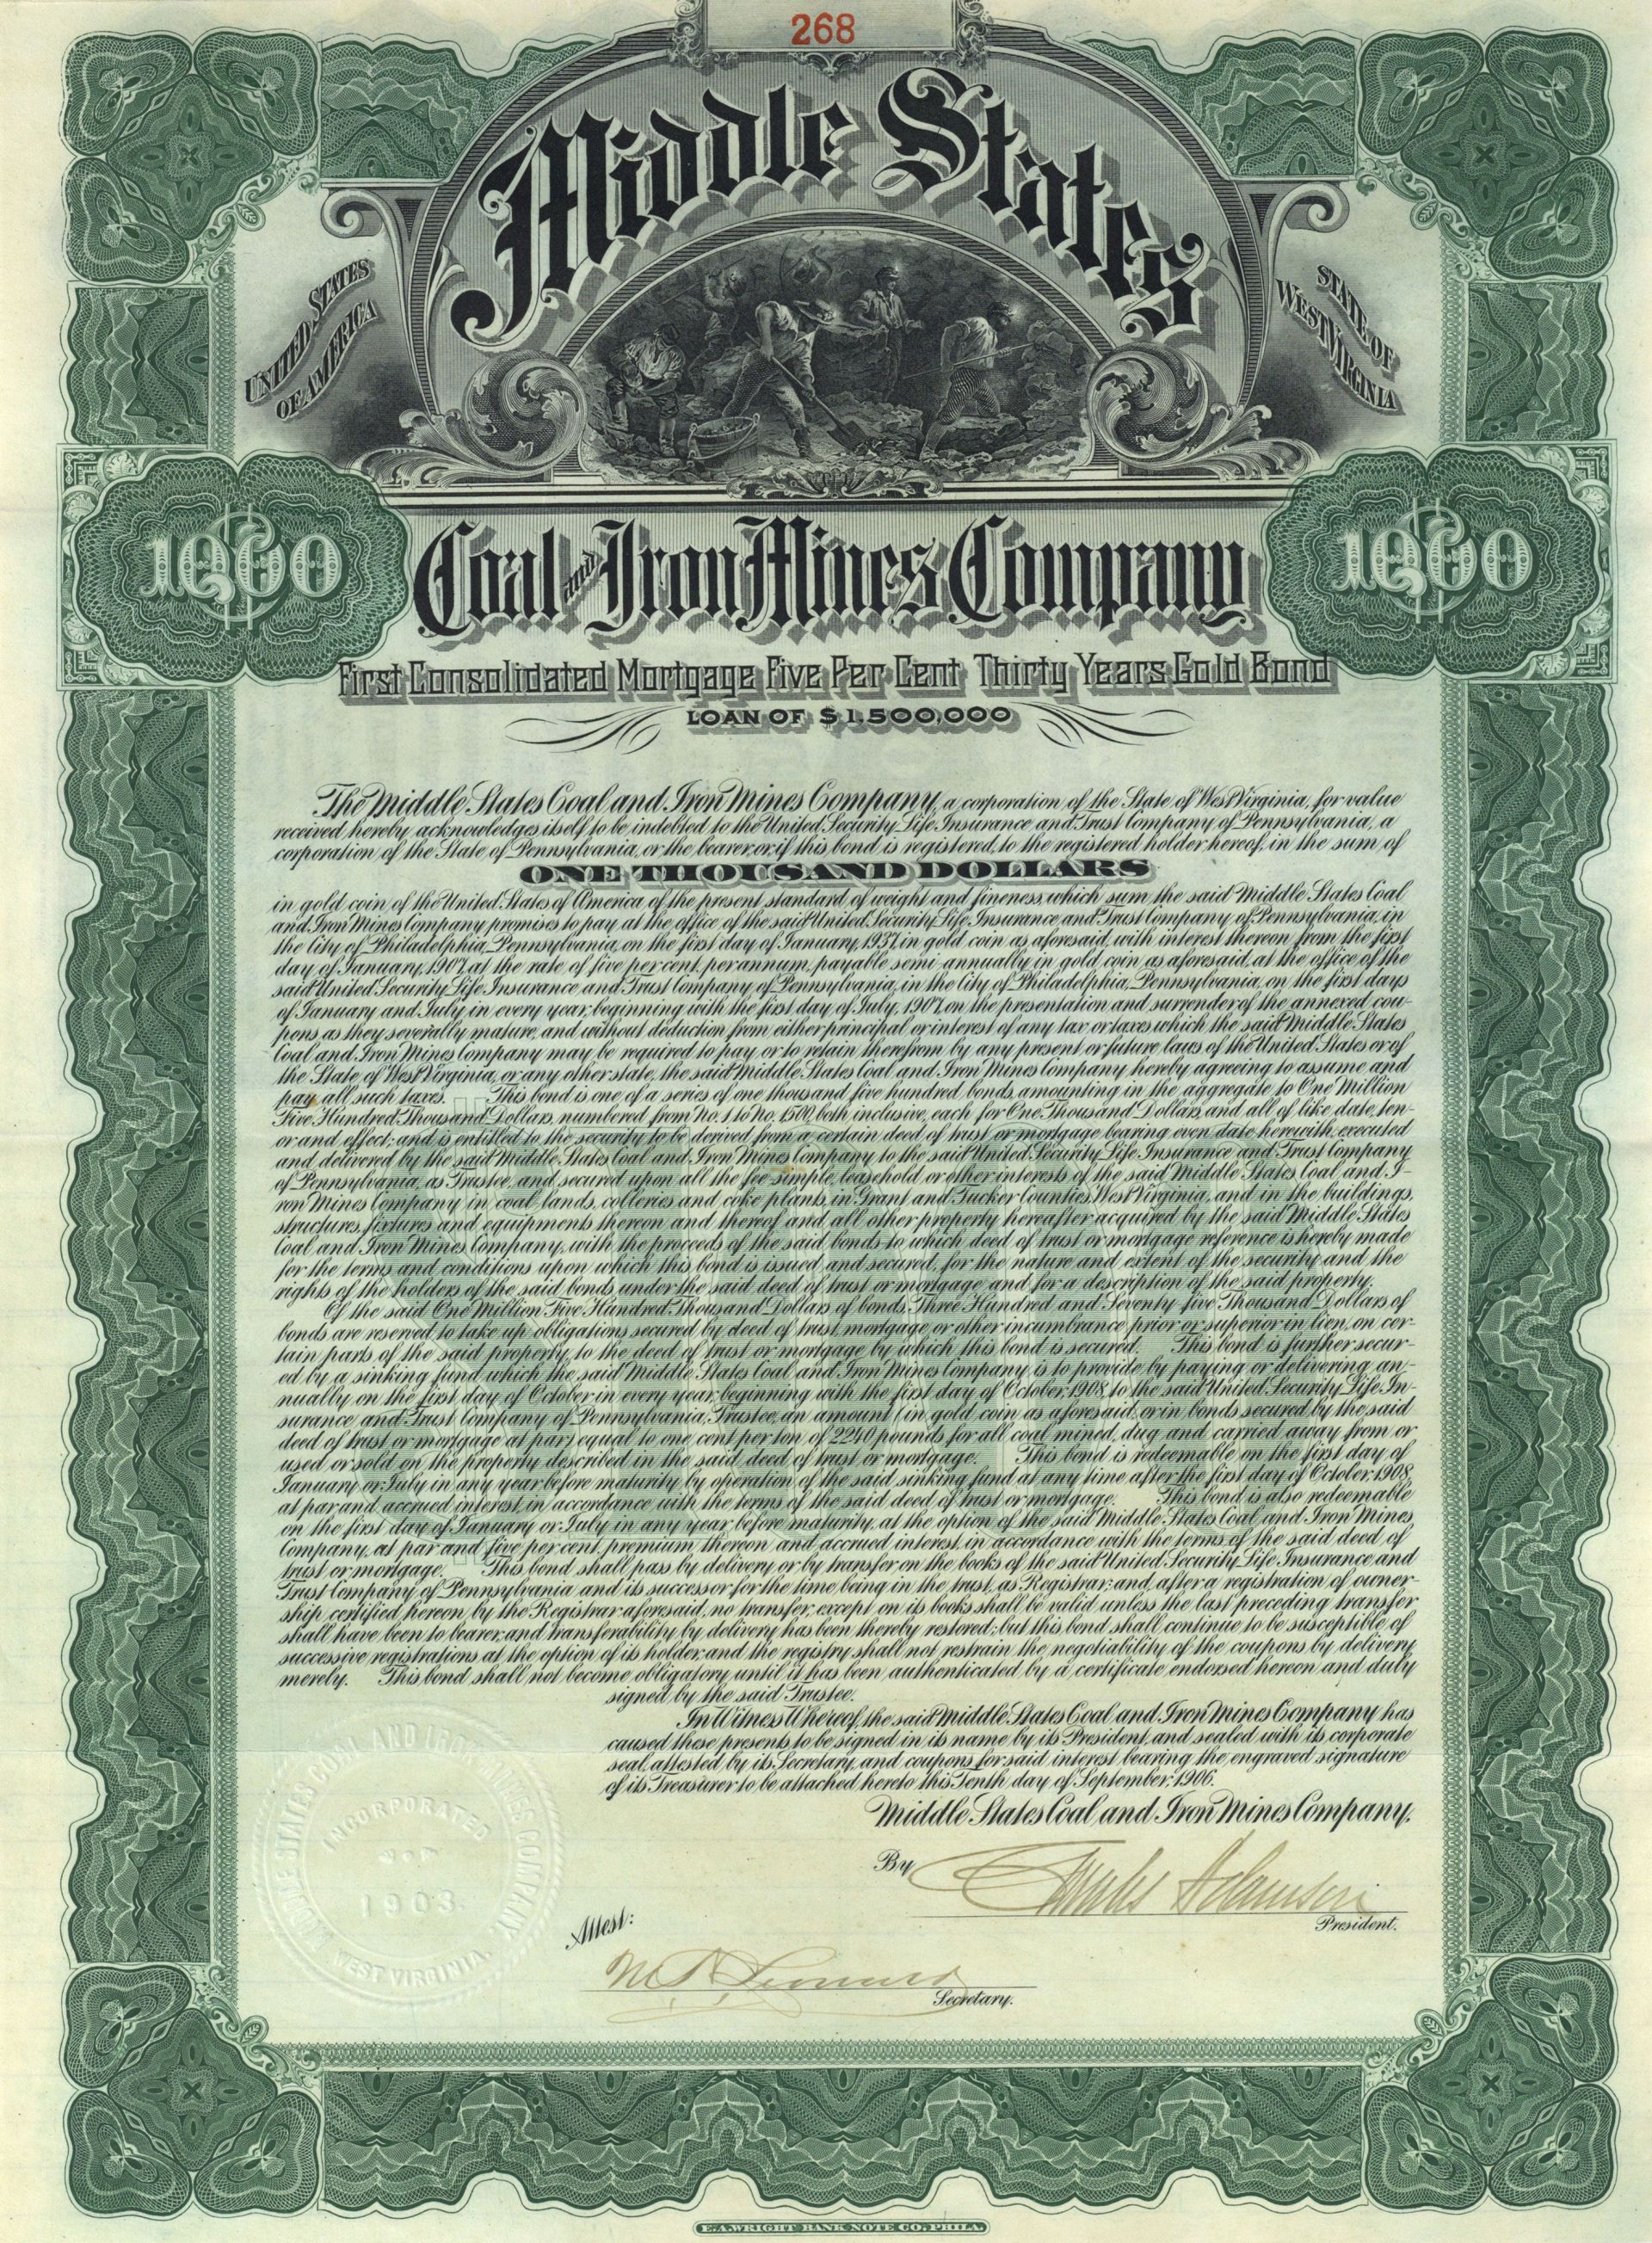 268
Middle States
UNITED STATES
OF AMERICA
STATE OF
WEST VIRGINIA
1000
1000
Coal and Iron Mines Company
First Consolidated Mortgage Five Per Cent Thirty Years Gold Bond
LOAN OF $1,500,000
The Middle States Coal and Iron Mines Company, a corporation of the State of West Virginia, for value
received hereby acknowledges itself to be indebted to the United Security Life Insurance and Trust Company of Pennsylvania, a
corporation of the State of Pennsylvania, or the bearer, or, if this bond is registered, to the registered holder hereof, in the sum of
ONE THOUSAND DOLLARS
in gold coin of the United States of America of the present standard of weight and fineness, which sum the said Middle States Coal
and Iron Mines Company promises to pay at the office of the said United Security Life Insurance and Trust Company of Pennsylvania, in
the City of Philadelphia, Pennsylvania, on the first day of January, 1937, in gold coin as aforesaid, with interest thereon from the first
day of January, 1907, at the rate of five per cent. per annum, payable semi-annually in gold coin, as aforesaid, at the office of the
said United Security Life Insurance and Trust Company of Pennsylvania, in the City of Philadelphia, Pennsylvania, on the first days
of January and July in every year, beginning with the first day of July, 1907, on the presentation and surrender of the annexed cou-
pons as they severally mature, and without deduction from either principal or interest of any tax or taxes which the said Middle States
Coal and Iron Mines Company may be required to pay or to retain therefrom by any present or future laws of the United States or of
the State of West Virginia, or any other state, the said Middle States Coal and Iron Mines Company hereby agreeing to assume and
pay all such taxes. This bond is one of a series of one thousand five hundred bonds, amounting in the aggregate to One Million
Five Hundred Thousand Dollars, numbered from No. 1 to No. 1500, both inclusive, each for One Thousand Dollars, and all of like date, ten-
or and effect; and is entitled to the security to be derived from a certain deed of trust or mortgage bearing even date herewith, executed
and delivered by the said Middle States Coal and Iron Mines Company to the said United Security Life Insurance and Trust Company
of Pennsylvania, as Trustee, and secured upon all the fee simple, leasehold or other interests of the said Middle States Coal and I-
ron Mines Company in coal lands, colleries and coke plants, in Grant and Tucker Counties, West Virginia, and in the buildings,
structures, fixtures and equipments thereon and thereof and all other property hereafter acquired by the said Middle States
Coal and Iron Mines Company, with the proceeds of the said bonds to which deed of trust or mortgage reference is hereby made
for the terms and conditions upon which this bond is issued and secured, for the nature and extent of the security and the
rights of the holders of the said bonds under the said deed of trust or mortgage and for a description of the said property.
Of the said One Million Five Hundred Thousand Dollars of bonds, Three Hundred and Seventy five Thousand Dollars of
bonds are reserved to take up obligations secured by deed of trust, mortgage, or other incumbrance prior or superior in lien, on cer-
tain parts of the said property, to the deed of trust or mortgage by which this bond is secured. This bond is further secur-
ed by a sinking fund which the said Middle States Coal and Iron Mines Company is to provide by paying or delivering an-
nually on the first day of October in every year, beginning with the first day of October, 1908, to the said United Security Life In-
surance and Trust Company of Pennsylvania, Trustee, an amount (in gold coin as aforesaid, or in bonds secured by the said
deed of trust or mortgage at par) equal to one cent per ton of 2240 pounds for all coal mined, dug and carried away from or
used or sold on the property described in the said deed of trust or mortgage. This bond is redeemable on the first day of
January or July in any year before maturity by operation of the said sinking fund at any time after the first day of October, 1908,
at par and accrued interest in accordance with the terms of the said deed of trust or mortgage. This bond is also redeemable
on the first day of January or July in any year before maturity, at the option of the said Middle States Coal and Iron Mines
Company, at par and five per cent. premium thereon and accrued interest, in accordance with the terms of the said deed of
trust or mortgage. This bond shall pass by delivery or by transfer on the books of the said United Security Life Insurance and
Trust Company of Pennsylvania and its successor for the time being in the trust, as Registrar; and, after a registration of owner-
ship certified hereon by the Registrar aforesaid, no transfer, except on its books shall be valid unless the last preceding transfer
shall have been to bearer, and transferability by delivery has been thereby restored; but this bond shall continue to be susceptible of
successive registrations at the option of its holder, and the registry shall not restrain the negotiability of the coupons by delivery
merely. This bond shall not become obligatory until it has been authenticated by a certificate endorsed hereon and duly
signed by the said Trustee.
In Witness Whereof, the said Middle States Coal and Iron Mines Company has
caused these presents to be signed in its name by its President, and sealed with its corporate
seal, attested by its Secretary, and coupons for said interest bearing the engraved signature
of its Treasurer to be attached hereto this Tenth day of September, 1906.
Middle States Coal and Iron Mines Company,
By Charles Adamson
President.
Attest:
Secretary.
MIDDLE STATES COAL AND IRON MINES COMPANY
INCORPORATED
1903
WEST VIRGINIA
E.A. WRIGHT BANK NOTE CO. PHILA.